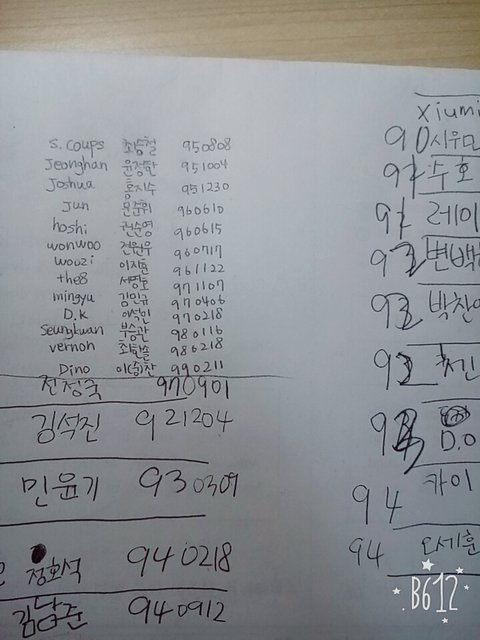 S.coups 최승철 950808
Jeonghan 윤정한 951004
Joshua 홍지수 951230
Jun 문준휘 960610
hoshi 권순영 960615
wonwoo 전원우 960717
woozi 이지훈 961122
the8 서명호 971107
mingyu 김민규 970406
D.K 이석민 970218
Seungkwan 부승관 980116
vernon 최한솔 980218
Dino 이(승)찬 990211
전정국 970901
김석진 921204
민윤기 930309
정호석 940218
김남준 940912
Xiumi
90 시우민
91 수호
91 레이
92 변백
92 박찬
92 첸
93 D.O
94 카이
94 오세훈
B612